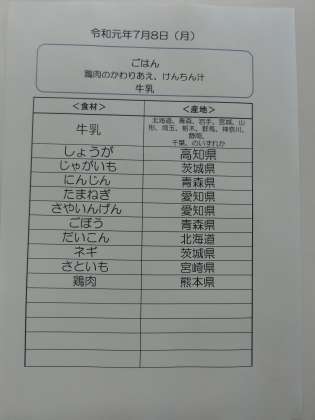 令和元年7月8日（月）
ごはん
鶏肉のかわりあえ、けんちん汁
牛乳
＜食材＞ ＜産地＞
牛乳 北海道、青森、岩手、宮城、山
形、埼玉、栃木、群馬、神奈川、
静岡、
千葉、のいずれか
しょうが 高知県
じゃがいも 茨城県
にんじん 青森県
たまねぎ 愛知県
さやいんげん 愛知県
ごぼう 青森県
だいこん 北海道
ネギ 茨城県
さといも 宮崎県
鶏肉 熊本県